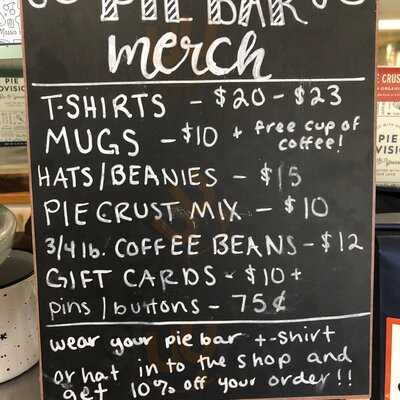 PIE BAR
merch
T-SHIRTS - $20 - $23
MUGS - $10 + free cup of coffee!
HATS/BEANIES - $15
PIECRUST MIX - $10
3/4 lb. COFFEE BEANS - $12
GIFT CARDS - $10+
pins/buttons - 75¢
wear your pie bar t-shirt
or hat in to the shop and
get 10% off your order!!
PIE
VISIO
E CRUS
PIE
VISIO